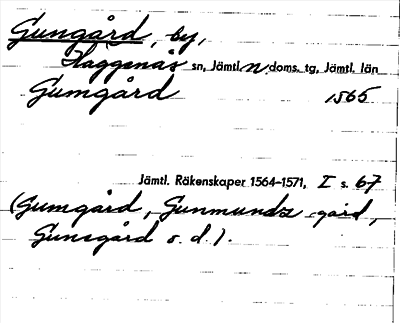 Gungård, by,
Häggenås sn, Jämtl. n doms. tg, Jämtl. län
Gumgård 1565
Jämtl. Räkenskaper 1564-1571, I s. 67
(Gumgård, Gunmundz -gård,
Gunsgård o. d.).